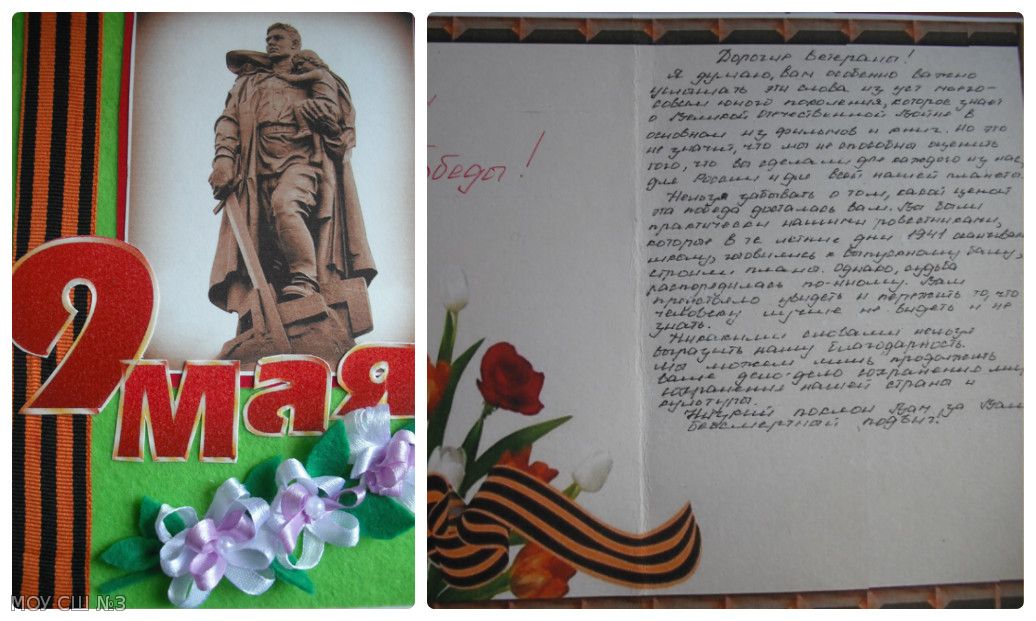 9
Мая
МОУ СШ №3
обеды!
Дорогие Ветераны!
Я думаю, вам особенно важно
услышать эти слова из уст
совсем юного поколения, которое знает
о Великой Отечественной Войне в
основном из фильмов и книг. Но это
не значит, что мы не способны оценить
того, что вы сделали для каждого из нас,
для России и для всей нашей планеты.
Нельзя забывать о том, какой ценой
эта победа досталась вам. Вы были
практически нашими ровестниками,
которое в те летние дни 1941
школу, готовились к выпускному балу,
строили планы. Однако, судьба
распорядилась по-иному. Вам
предстояло увидеть и пережить то, что
человеку лучше не видеть и не
знать.
Никакими словами нельзя
выразить нашу благодарность.
Мы можем лишь продолжить
ваше дело-дело сохранения
сохранения нашей страны и
культуры.
Низкий поклон Вам за Ваш
бессмертный подвиг.